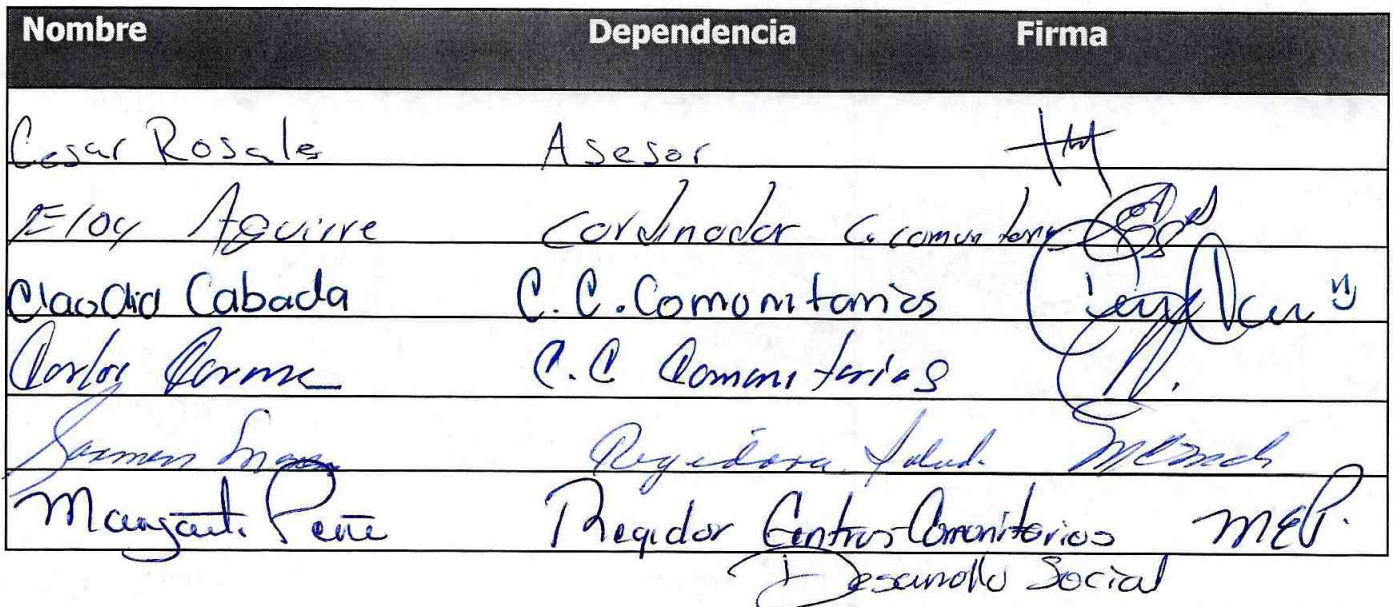 Nombre Dependencia Firma
Cesar Rosales Asesor
Eloy Aguirre Cordinador C. comunitarios
Claudia Cabada C.C. Comunitarios
Carlos C.C Comunitarias
Regidora Salud
Margarita Peña Regidor Centros Comunitarios MEP.
Desarrollo Social